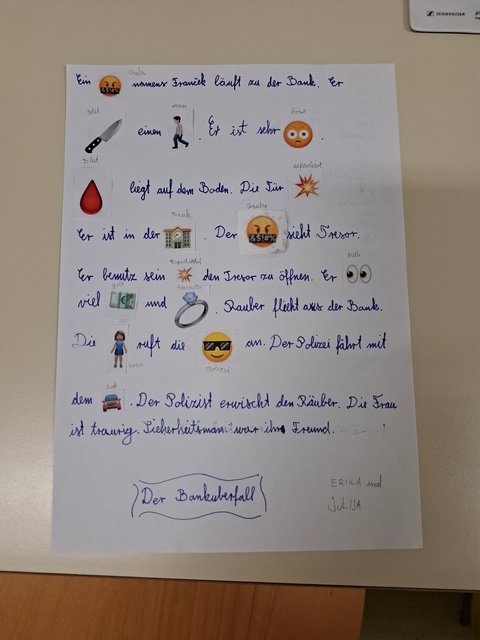 SENNHEISER
Ein namens Franček läuft zu der Bank. Er
man
böse
einen . Er ist sehr .
Blut
explodiert
liegt auf dem Boden. Die Tür
Bank
Räuber
Er ist in der . Der &$!#% sieht Tresor.
Er benutz sein den Tresor zu öffnen. Er
sieht
geld
viel und . Räuber flieht aus der Bank.
Die ruft die an. Der Polizei fährt mit
Frau
Polizei
dem . Der Polizist erwischt den Räuber. Die Frau
ist traurig. Sicherheitsman war ihr Freund.
Der Banküberfall
ERIKA und
JULIJA